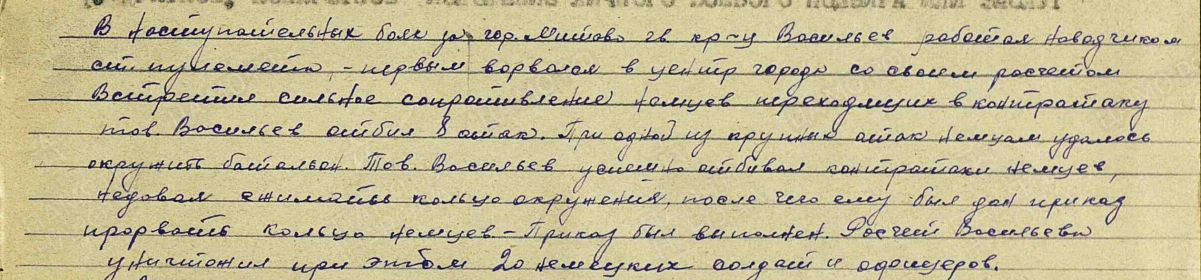 В наступательных боях за гор. Митово гв кр-ц Васильев работая наводчиком
ст. пулемета, - первым ворвался в центр города со своим расчетом
Встретив сильное сопротивление немцев переходящих в контратаку
тов. Васильев отбил 8 атак. При одной из крупных атак немцам удалось
окружить батальон. Тов. Васильев успешно отбивал контратаки немцев,
недавая сжимать кольцо окружения, после чего ему был дан приказ
прорвать кольцо немцев. - Приказ был выполнен. Расчет Васильева
уничтожил при этом 20 немецких солдат и офицеров.